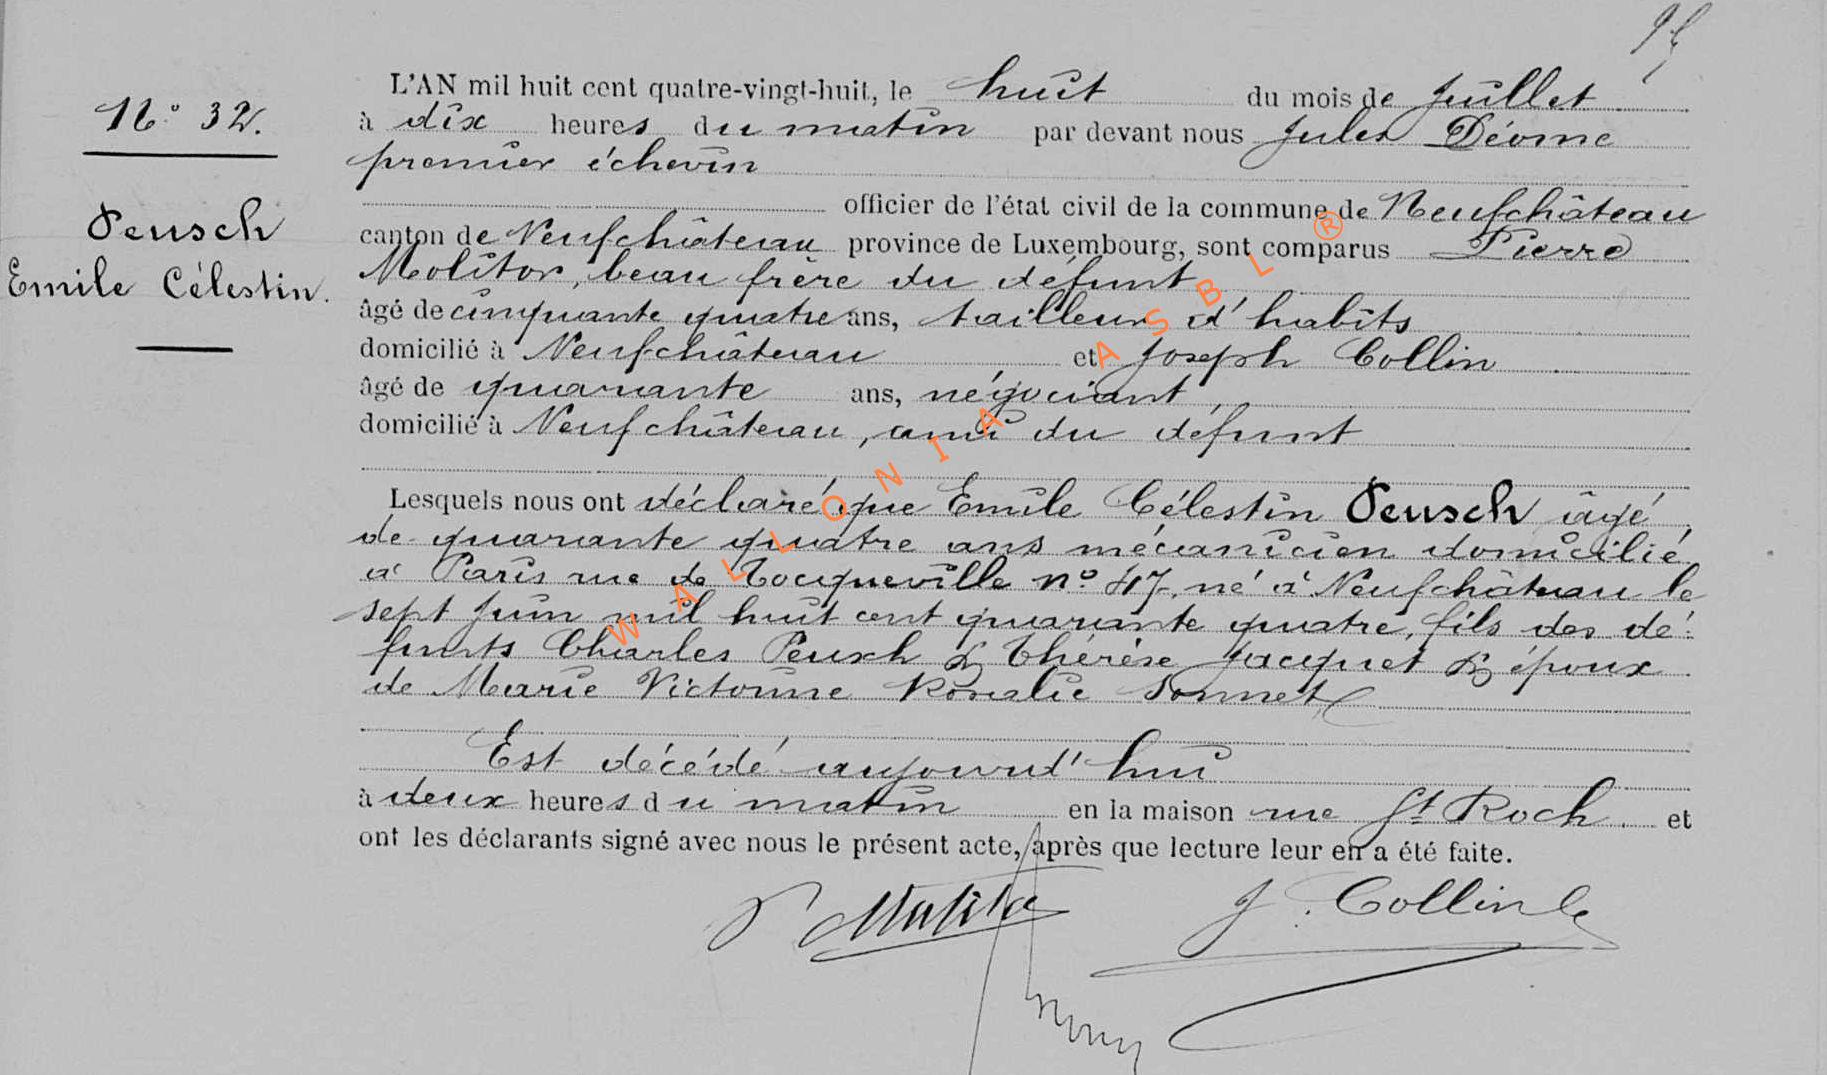 N° 32.
Peusch
Emile Célestin.
L'AN mil huit cent quatre-vingt-huit, le huit du mois de Juillet
à dix heures du matin par devant nous Jules Déome
premier échevin
officier de l'état civil de la commune de Neufchâteau
canton de Neufchâteau province de Luxembourg, sont comparus Pierre
Molitor, beau frère du défunt
âgé de cinquante quatre ans, tailleur d'habits
domicilié à Neufchâteau et Joseph Collin
âgé de quarante ans, négociant,
domicilié à Neufchâteau, ami du défunt
Lesquels nous ont déclaré que Emile Célestin Peusch âgé
de quarante quatre ans mécanicien domicilié
à Paris rue de Tocqueville n° 47, né à Neufchâteau le
sept Juin mil huit cent quarante quatre, fils des dé-
funts Charles Peusch & Thérèse Jacquet & époux
de Marie Victorine Rosalie Sonnet
Est décédé aujourd'hui
à deux heures du matin en la maison rue St Roch. et
ont les déclarants signé avec nous le présent acte, après que lecture leur en a été faite.
P Molitor J. Collin
WALLONIA ASBL ®